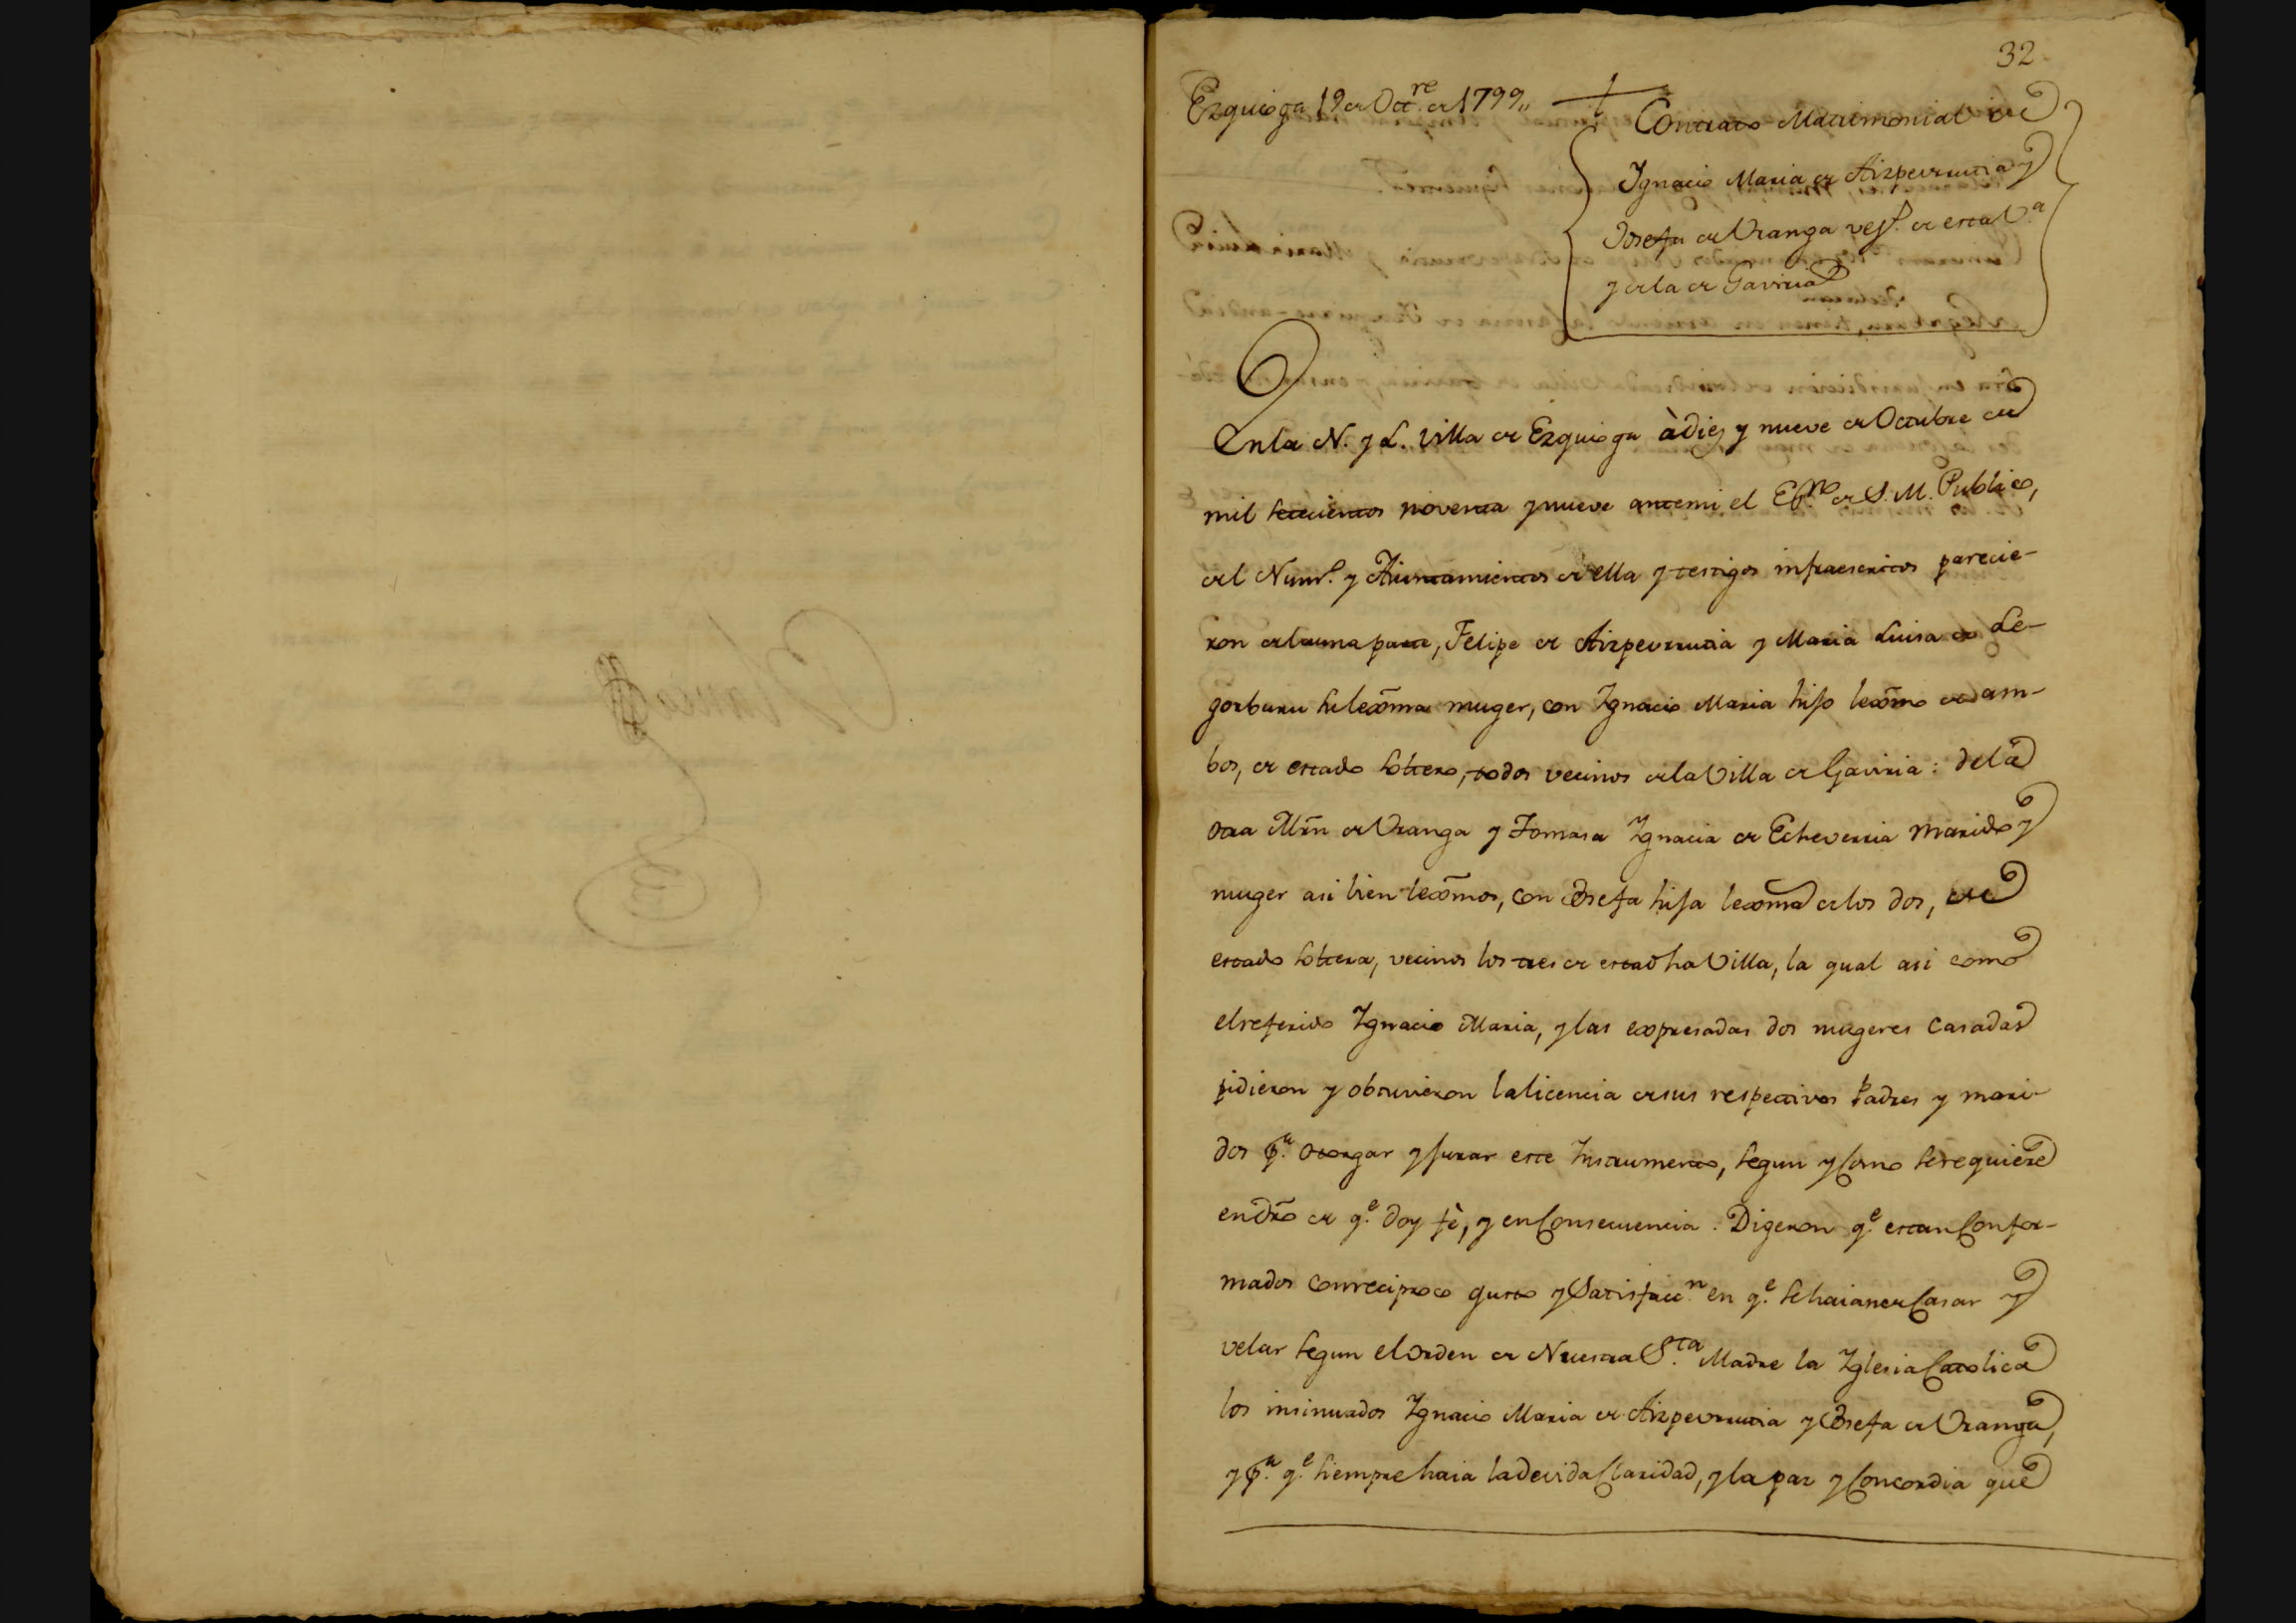 32
Ezquioga 19 de Oct.re de 1799,,
Contrato Matrimonial de
Ignacio Maria de Aizpeurrutia y
Josefa de Vranga vez.s de esta V.a
y de la de Gaviria
En la N. y L. Villa de Ezquioga à diez y nueve de Octubre de
mil setecientos noventa y nueve ante mi el Es.no de S. M. Publico,
del Num.o y Aiuntamientos de ella y testigos infraescritos parecie-
ron de la una parte, Felipe de Aizpeurrutia y Maria Luisa de Le-
gorburu su lexma muger, con Ignacio Maria hijo lexmo de am-
bos, de estado soltero, todos vecinos de la Villa de Gaviria: de la
otra Mrn de Vranga y Tomasa Ignacia de Echeverria marido y
muger asi bien lexmos, con Josefa hija lexma de los dos, de
estado soltera, vecinos los tres de esta dha Villa, la qual asi como
el referido Ignacio Maria, y las expresadas dos mugeres casadas
pidieron y obtuvieron la licencia de sus respectivos Padres y mari-
dos p.a otorgar y jurar este Instrumento, segun y como se requiere
en dro de q.e doy fè, y en Consecuencia: Digeron q.e estan Confor-
mados con reciproco gusto y Satisfacc.n en q.e se haian de Casar y
velar segun el orden de Nuestra S.ta Madre la Iglesia Catolica
los insinuados Ignacio Maria de Aizpeurrutia y Josefa de Vranga,
y p.a q.e siempre haia la devida Claridad, y la paz y Concordia que